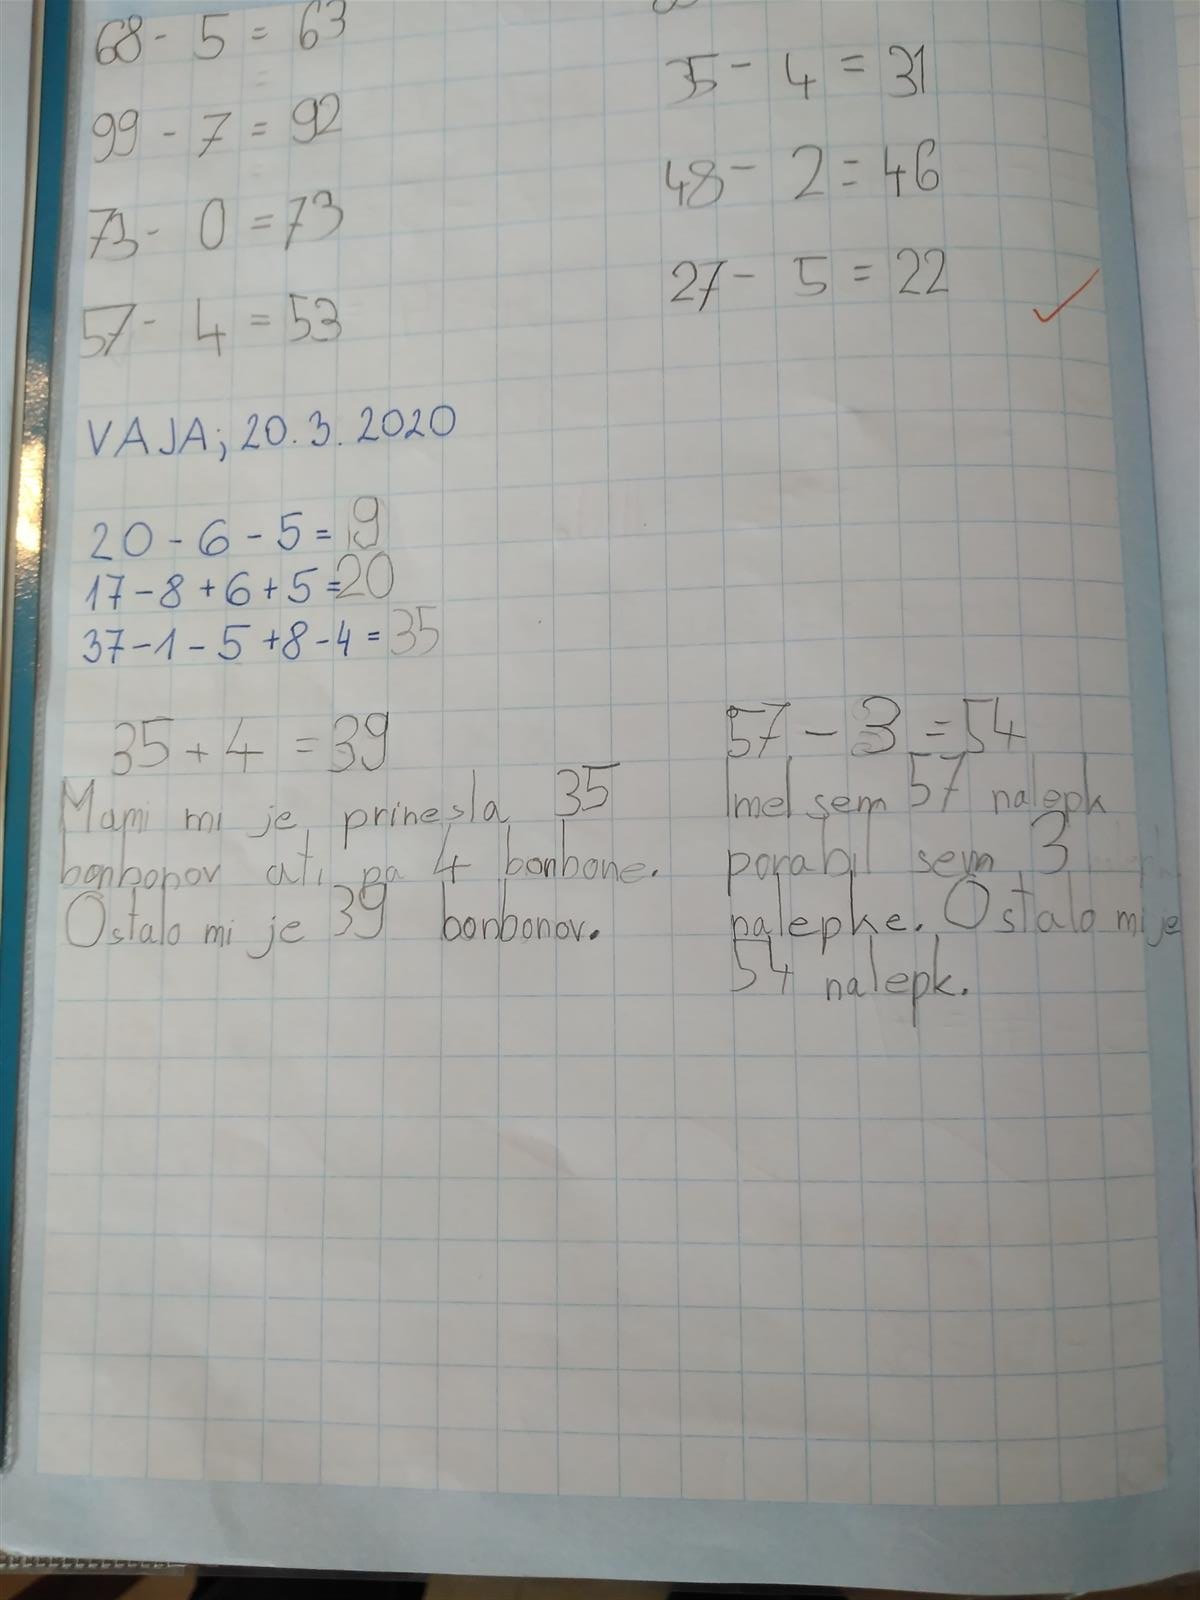 68 - 5 = 63
99 - 7 = 92
73 - 0 = 73
57 - 4 = 53
35 - 4 = 31
48 - 2 = 46
27 - 5 = 22
VAJA; 20.3.2020
20 - 6 - 5 = 9
17 - 8 + 6 + 5 = 20
37 - 1 - 5 + 8 - 4 = 35
35 + 4 = 39
Mami mi je prinesla 35
bonbonov ati pa 4 bonbone.
Ostalo mi je 39 bonbonov.
57 - 3 = 54
Imel sem 57 nalepk
porabil sem 3
nalepke. Ostalo mi je
54 nalepk.